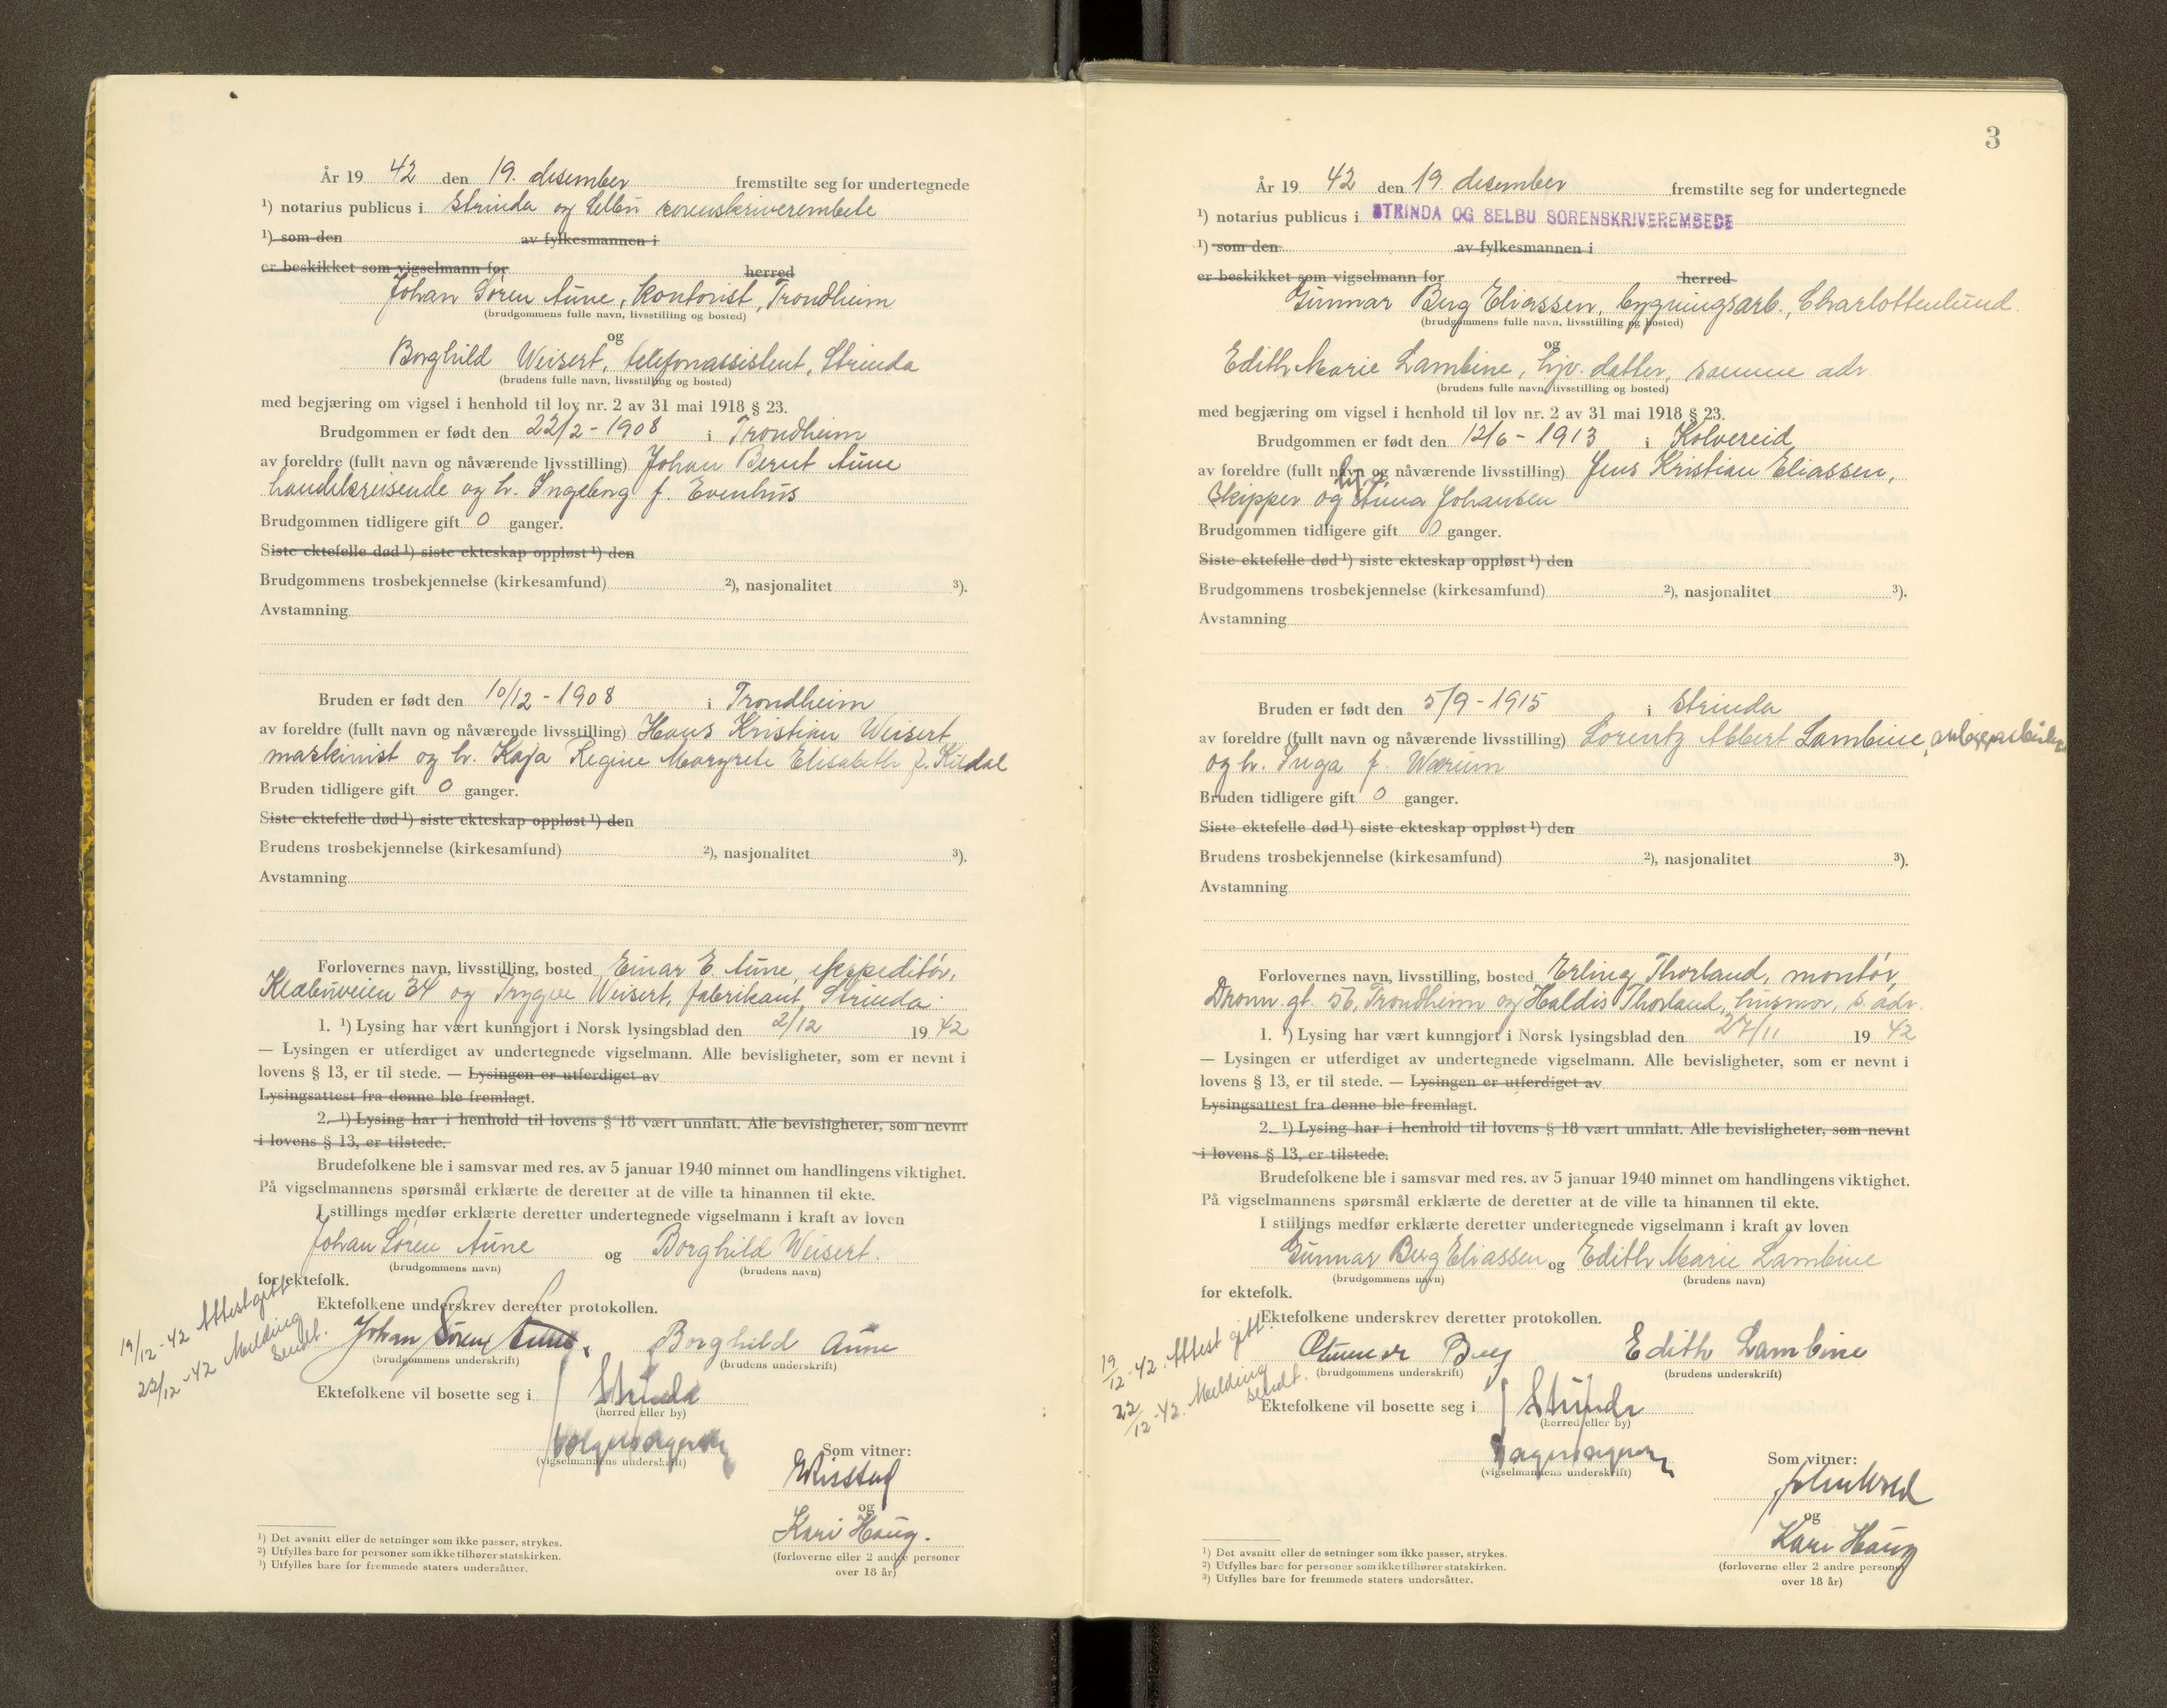 År 19 42 den 19. desember fremstilte seg for undertegnede
¹) notarius publicus i Strinda og Selbu sorenskriverembete
¹) som den av fylkesmannen i
er beskikket som vigselmann for herred
Johan Sören Aune, kontorist, Trondheim
(brudgommens fulle navn, livsstilling og bosted)
og
Borghild Weisert, telefonassistent, Strinda
(brudens fulle navn, livsstilling og bosted)
med begjæring om vigsel i henhold til lov nr. 2 av 31 mai 1918 § 23.
Brudgommen er født den 22/2 - 1908 i Trondheim
av foreldre (fullt navn og nåværende livsstilling) Johan Bernt Aune
handelsreisende og h. Ingeborg f. Evenhus
Brudgommen tidligere gift 0 ganger.
Siste ektefelle død ¹) siste ekteskap oppløst ¹) den
Brudgommens trosbekjennelse (kirkesamfund) ²), nasjonalitet ³).
Avstamning
Bruden er født den 10/12 - 1908 i Trondheim
av foreldre (fullt navn og nåværende livsstilling) Hans Kristian Weisert
maskinist og h. Kaja Regine Margrete Elisabeth f. Kildal
Bruden tidligere gift 0 ganger.
Siste ektefelle død ¹) siste ekteskap oppløst ¹) den
Brudens trosbekjennelse (kirkesamfund) ²), nasjonalitet ³).
Avstamning
Forlovernes navn, livsstilling, bosted Einar E. Aune, ekspeditör,
Klæbuveien 34 og Trygve Weisert, fabrikant, Strinda.
1. ¹) Lysing har vært kunngjort i Norsk lysingsblad den 2/12 19 42
— Lysingen er utferdiget av undertegnede vigselmann. Alle bevisligheter, som er nevnt i
lovens § 13, er til stede. — Lysingen er utferdiget av
Lysingsattest fra denne ble fremlagt.
2. ¹) Lysing har i henhold til lovens § 18 vært unnlatt. Alle bevisligheter, som nevnt
i lovens § 13, er tilstede.
Brudefolkene ble i samsvar med res. av 5 januar 1940 minnet om handlingens viktighet.
På vigselmannens spørsmål erklærte de deretter at de ville ta hinannen til ekte.
I stillings medfør erklærte deretter undertegnede vigselmann i kraft av loven
Johan Sören Aune og Borghild Weisert.
(brudgommens navn) (brudens navn)
for ektefolk.
Ektefolkene underskrev deretter protokollen.
19/12-42 Attest gitt
22/12-42 Melding sendt.
Johan Sören Aune. Borghild Aune
(brudgommens underskrift) (brudens underskrift)
Ektefolkene vil bosette seg i Strinda
(herred eller by)
(vigselmannens underskrift)
Som vitner:
og
Kari Haug.
(forloverne eller 2 andre personer
over 18 år)
¹) Det avsnitt eller de setninger som ikke passer, strykes.
²) Utfylles bare for personer som ikke tilhører statskirken.
³) Utfylles bare for fremmede staters undersåtter.
3
År 19 42 den 19. desember fremstilte seg for undertegnede
¹) notarius publicus i STRINDA OG SELBU SORENSKRIVEREMBEDE
¹) som den av fylkesmannen i
er beskikket som vigselmann for herred
Gunnar Berg Eliassen, bygningsarb., Charlottenlund.
(brudgommens fulle navn, livsstilling og bosted)
og
Edith Marie Lambine, hjv. datter, samme adr
(brudens fulle navn, livsstilling og bosted)
med begjæring om vigsel i henhold til lov nr. 2 av 31 mai 1918 § 23.
Brudgommen er født den 12/6 - 1913 i Kolvereid
av foreldre (fullt navn og nåværende livsstilling) Jens Kristian Eliassen,
skipper og Anna Johansen
Brudgommen tidligere gift 0 ganger.
Siste ektefelle død ¹) siste ekteskap oppløst ¹) den
Brudgommens trosbekjennelse (kirkesamfund) ²), nasjonalitet ³).
Avstamning
Bruden er født den 5/9 - 1915 i Strinda
av foreldre (fullt navn og nåværende livsstilling) Lorentz Albert Lambine, anleggsarbeider
og h. Inga f. Wærum
Bruden tidligere gift 0 ganger.
Siste ektefelle død ¹) siste ekteskap oppløst ¹) den
Brudens trosbekjennelse (kirkesamfund) ²), nasjonalitet ³).
Avstamning
Forlovernes navn, livsstilling, bosted Erling Thorland, montör,
Dronn. gt. 56, Trondheim og Haldis Thorland, husmor, s. adr.
1. ¹) Lysing har vært kunngjort i Norsk lysingsblad den 27/11 19 42
— Lysingen er utferdiget av undertegnede vigselmann. Alle bevisligheter, som er nevnt i
lovens § 13, er til stede. — Lysingen er utferdiget av
Lysingsattest fra denne ble fremlagt.
2. ¹) Lysing har i henhold til lovens § 18 vært unnlatt. Alle bevisligheter, som nevnt
i lovens § 13, er tilstede.
Brudefolkene ble i samsvar med res. av 5 januar 1940 minnet om handlingens viktighet.
På vigselmannens spørsmål erklærte de deretter at de ville ta hinannen til ekte.
I stillings medfør erklærte deretter undertegnede vigselmann i kraft av loven
Gunnar Berg Eliassen og Edith Marie Lambine
(brudgommens navn) (brudens navn)
for ektefolk.
Ektefolkene underskrev deretter protokollen.
19/12-42. Attest gitt.
22/12-42. Melding sendt.
Gunnar Berg Edith Lambine
(brudgommens underskrift) (brudens underskrift)
Ektefolkene vil bosette seg i Strinda
(herred eller by)
(vigselmannens underskrift)
Som vitner:
og
Kari Haug
(forloverne eller 2 andre personer
over 18 år)
¹) Det avsnitt eller de setninger som ikke passer, strykes.
²) Utfylles bare for personer som ikke tilhører statskirken.
³) Utfylles bare for fremmede staters undersåtter.